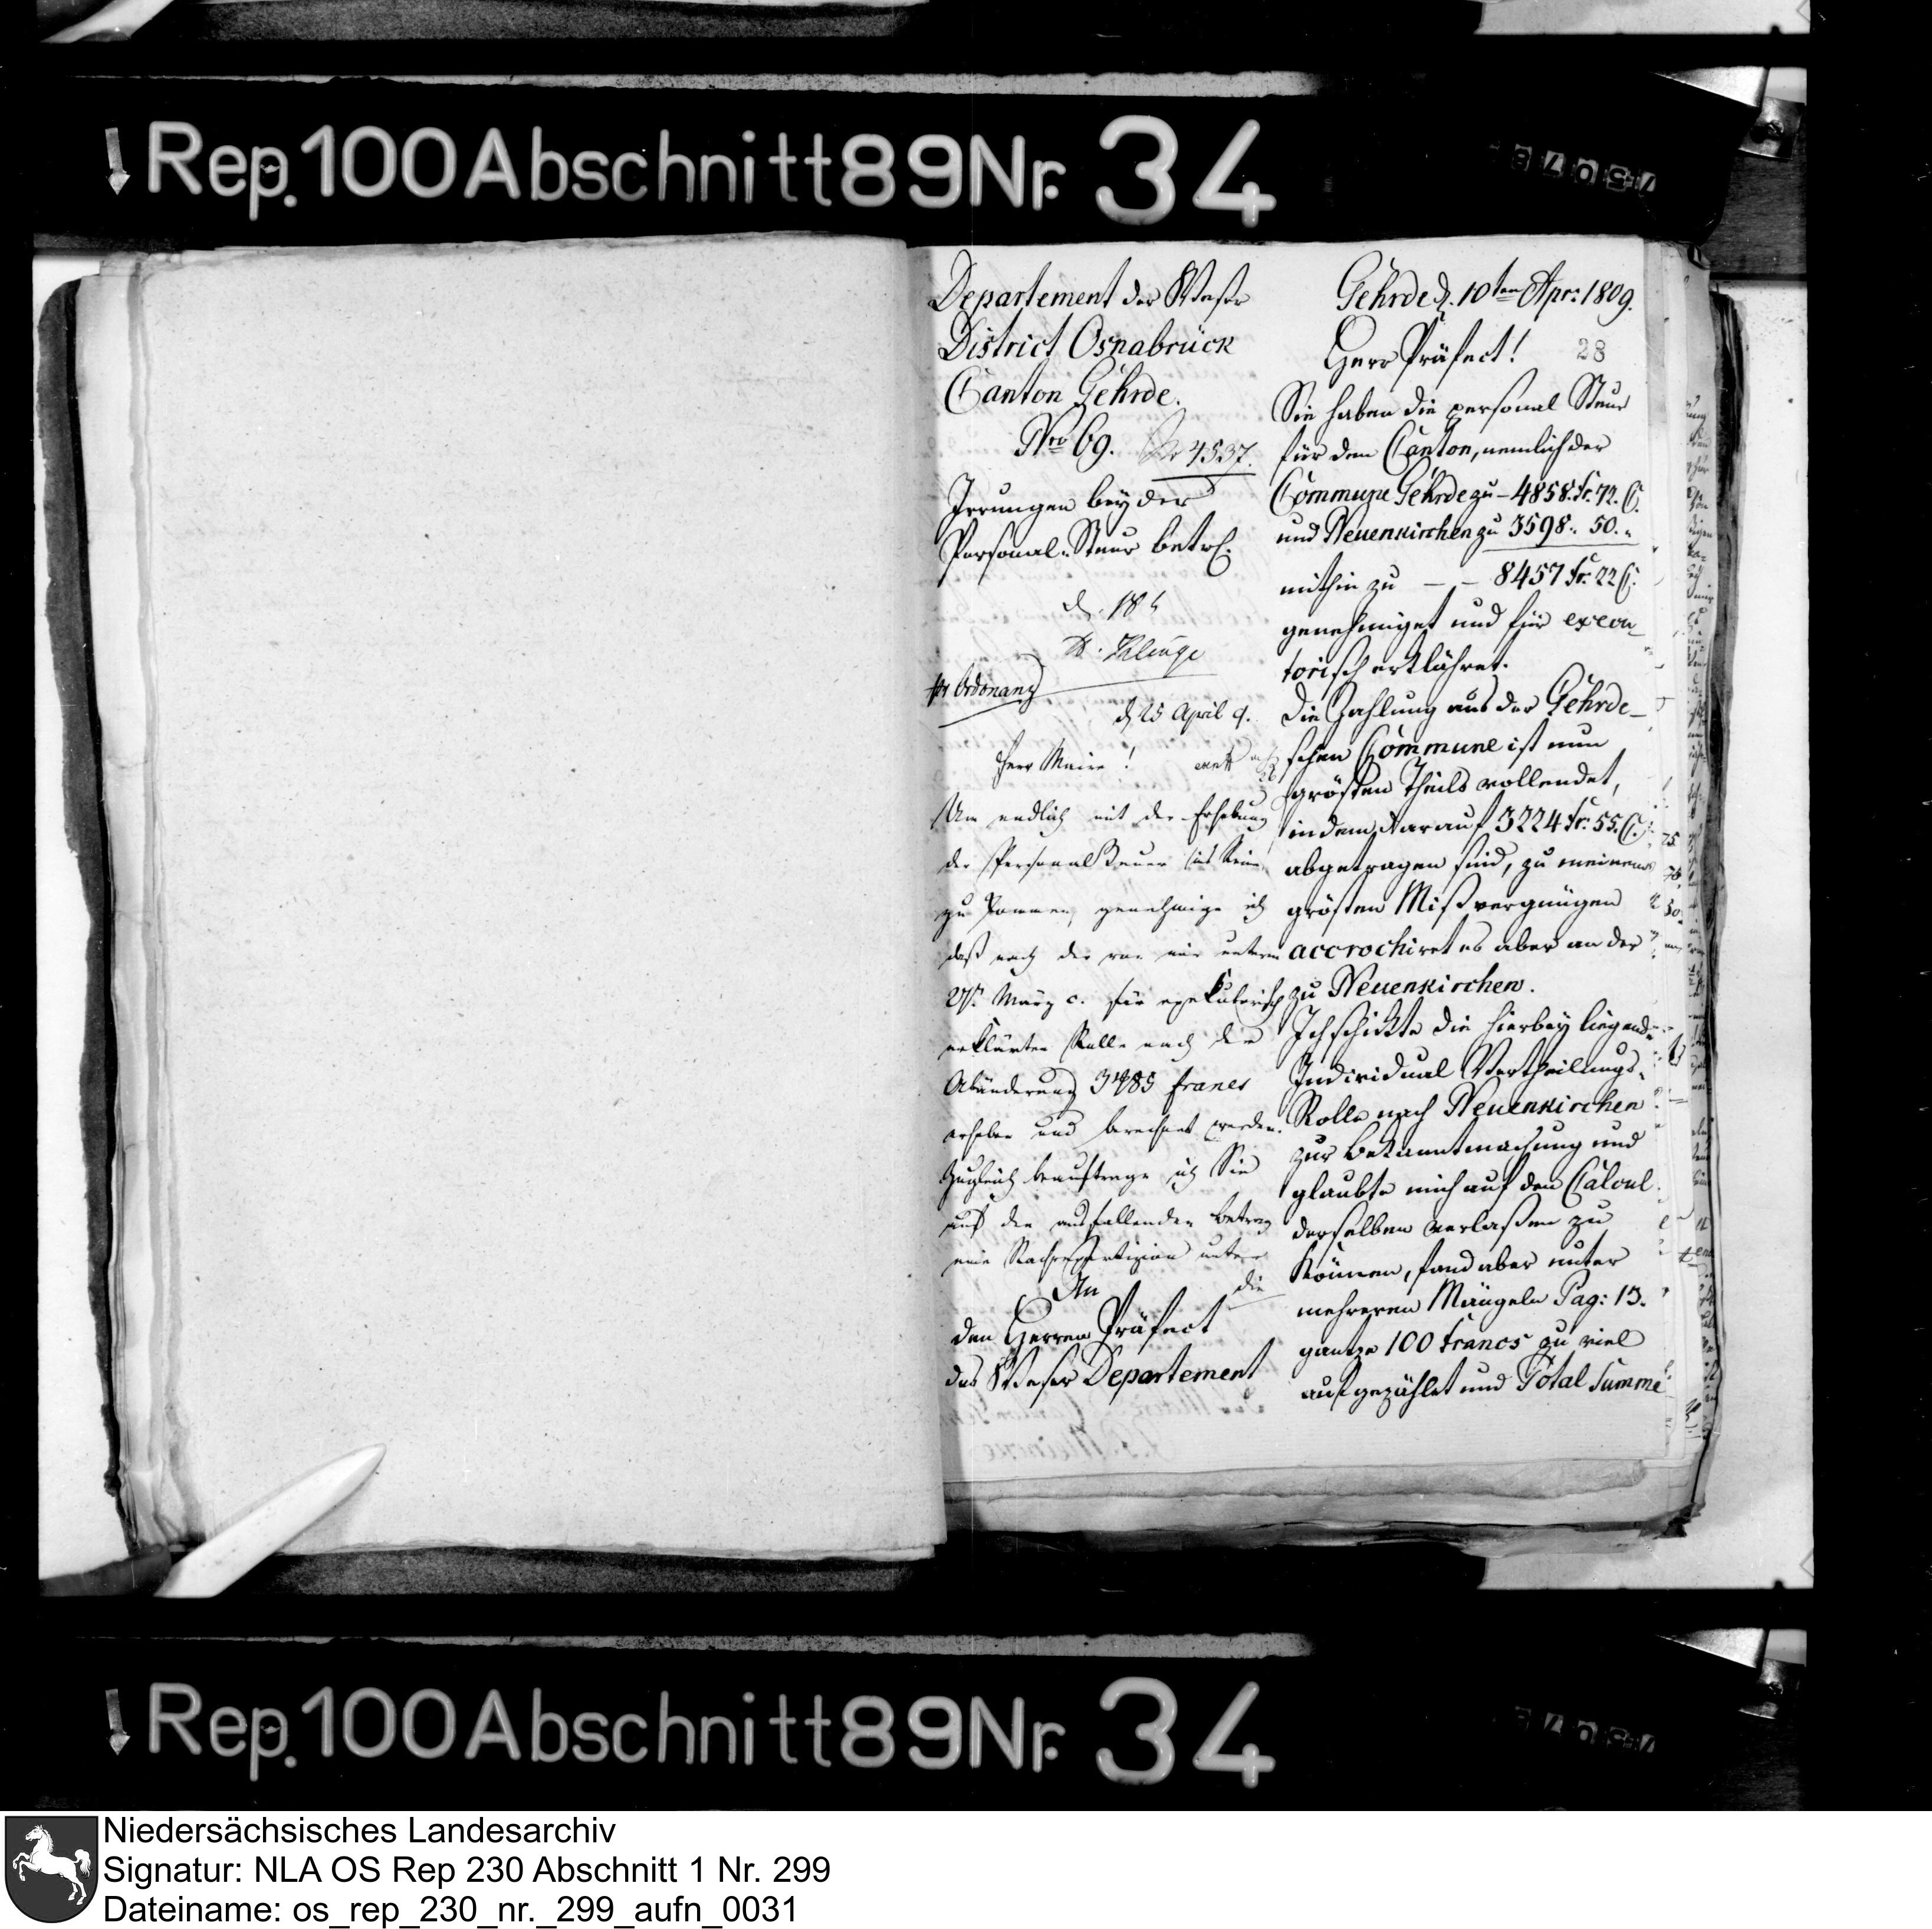 Rep. 100 Abschnitt 89 Nr. 34
Departement der Weser
District Osnabrück
Canton Gehrde.
Nro 69. 4537.
Irrungen bey der
Personal-Steur betrf.
Klenze
pr Ordonanz
d 25 April 9.
Herr Maire!
Um endlich mit der Erhebung
der Personalsteuer ins Reine
zu kommen, genehmige ich
daß nach der von mir unterm
März c. für exekutorisch
erklärten Rolle nach der
Abänderung 3485 francs
erhoben und berechnet werden.
Zugleich beauftrage ich Sie
auf den ausfallenden Betrag
eine Nachrepartizion unter
die
An
den Herren Präfect
des Weser Departement
Gehrde d. 10ten Apr: 1809.
Herr Präfect! 28
Sie haben die personal Steur
für den Canton, nemlich der
Commune Gehrde zu - 4858. fr. 72. C.
und Neuenkirchen zu 3598 . 50 . "
mithin zu — — 8457 fr. 22 C.
genehmiget und für execu-
torisch erklähret.
Die Zahlung aus der Gehrde-
schen Commune ist nun
grösten Theils vollendet,
indem darauf 3224 fr: 55. C.
abgetragen sind, zu meinem
grösten Mißvergnügen
accrochiret es aber an der
zu Neuenkirchen.
Ich schickte die hierbey liegende
Individual Vertheilungs-
Rolle nach Neuenkirchen
zur bekanntmachung und
glaubte mich auf den Calcul
derselben verlaßen zu
können, fand aber unter
mehreren Mängeln Pag: 13.
gantze 100 francs zu viel
aufgezählet und Total Summe
Rep. 100 Abschnitt 89 Nr. 34
Niedersächsisches Landesarchiv
Signatur: NLA OS Rep 230 Abschnitt 1 Nr. 299
Dateiname: os_rep_230_nr._299_aufn_0031